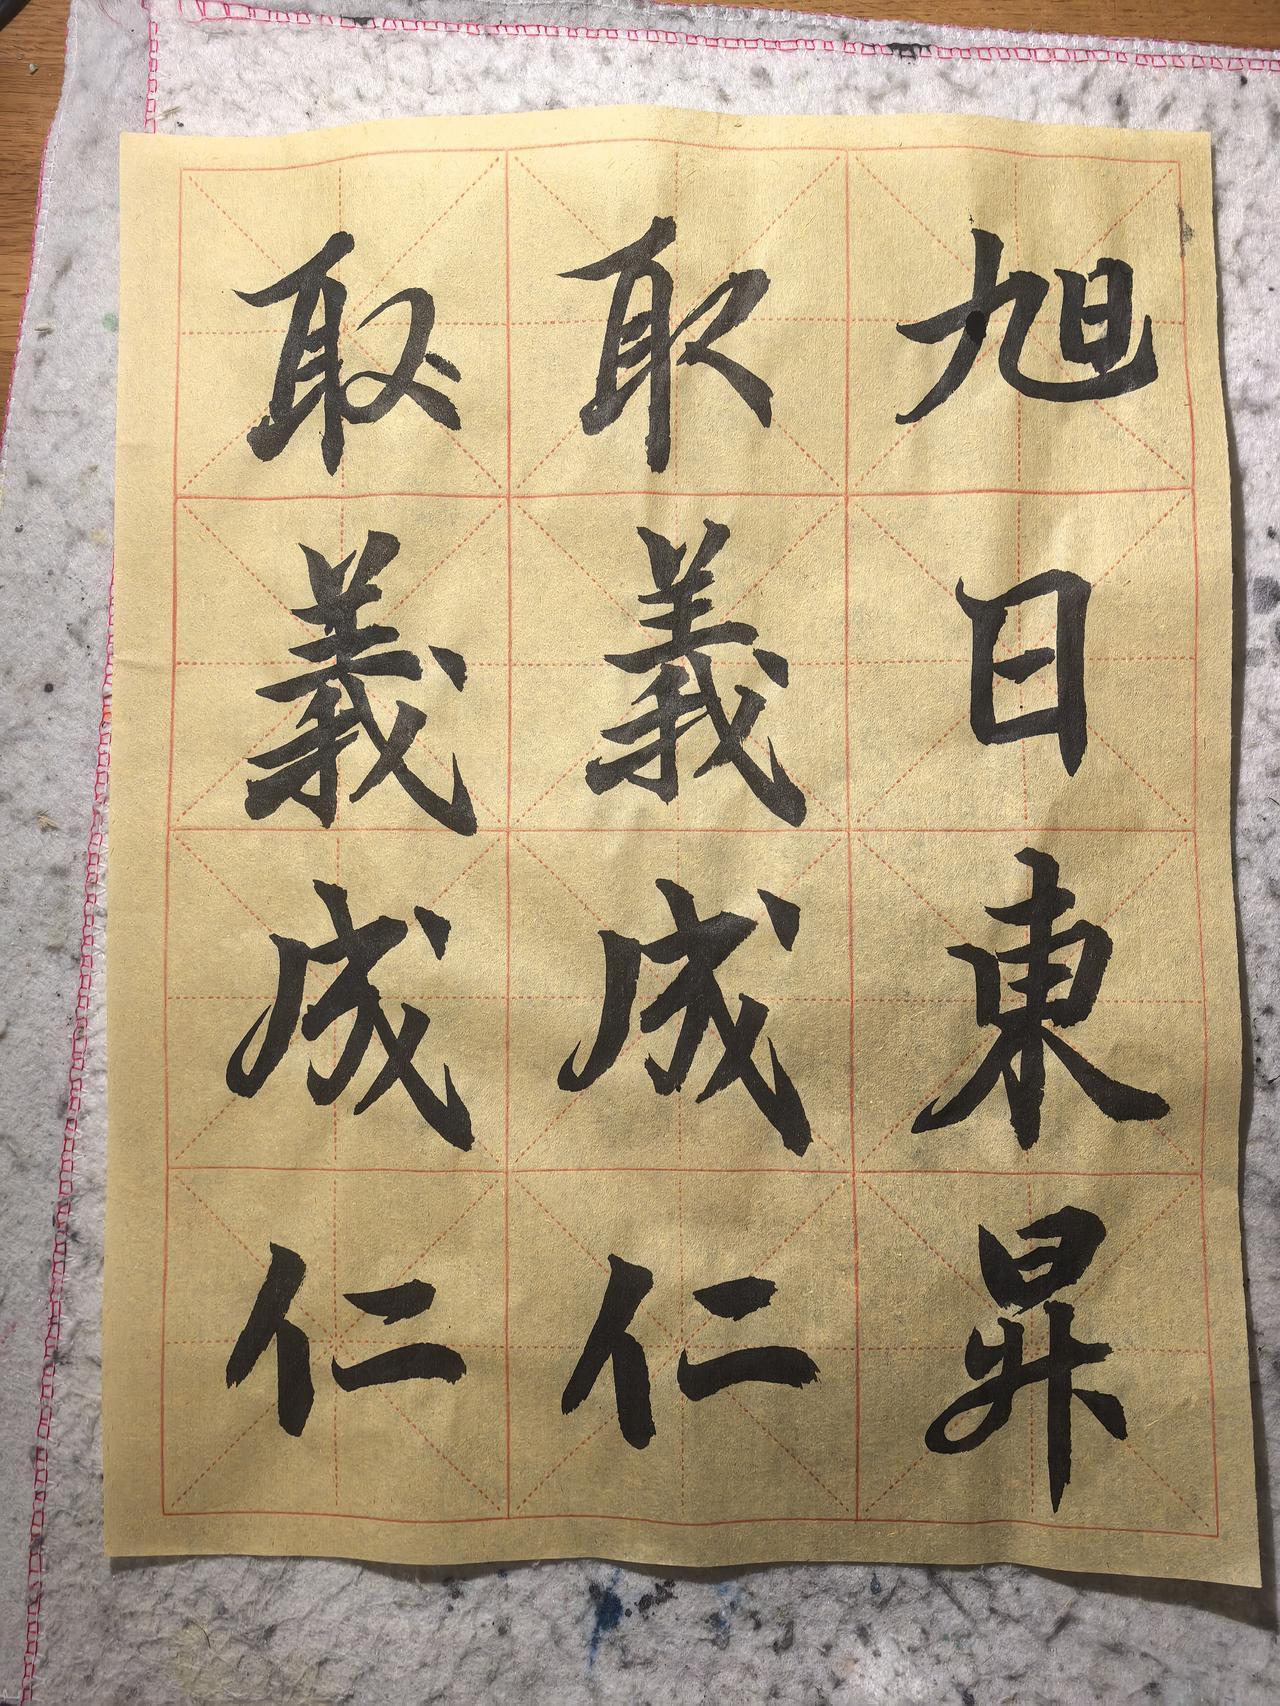 旭日東昇
取義成仁
取義成仁